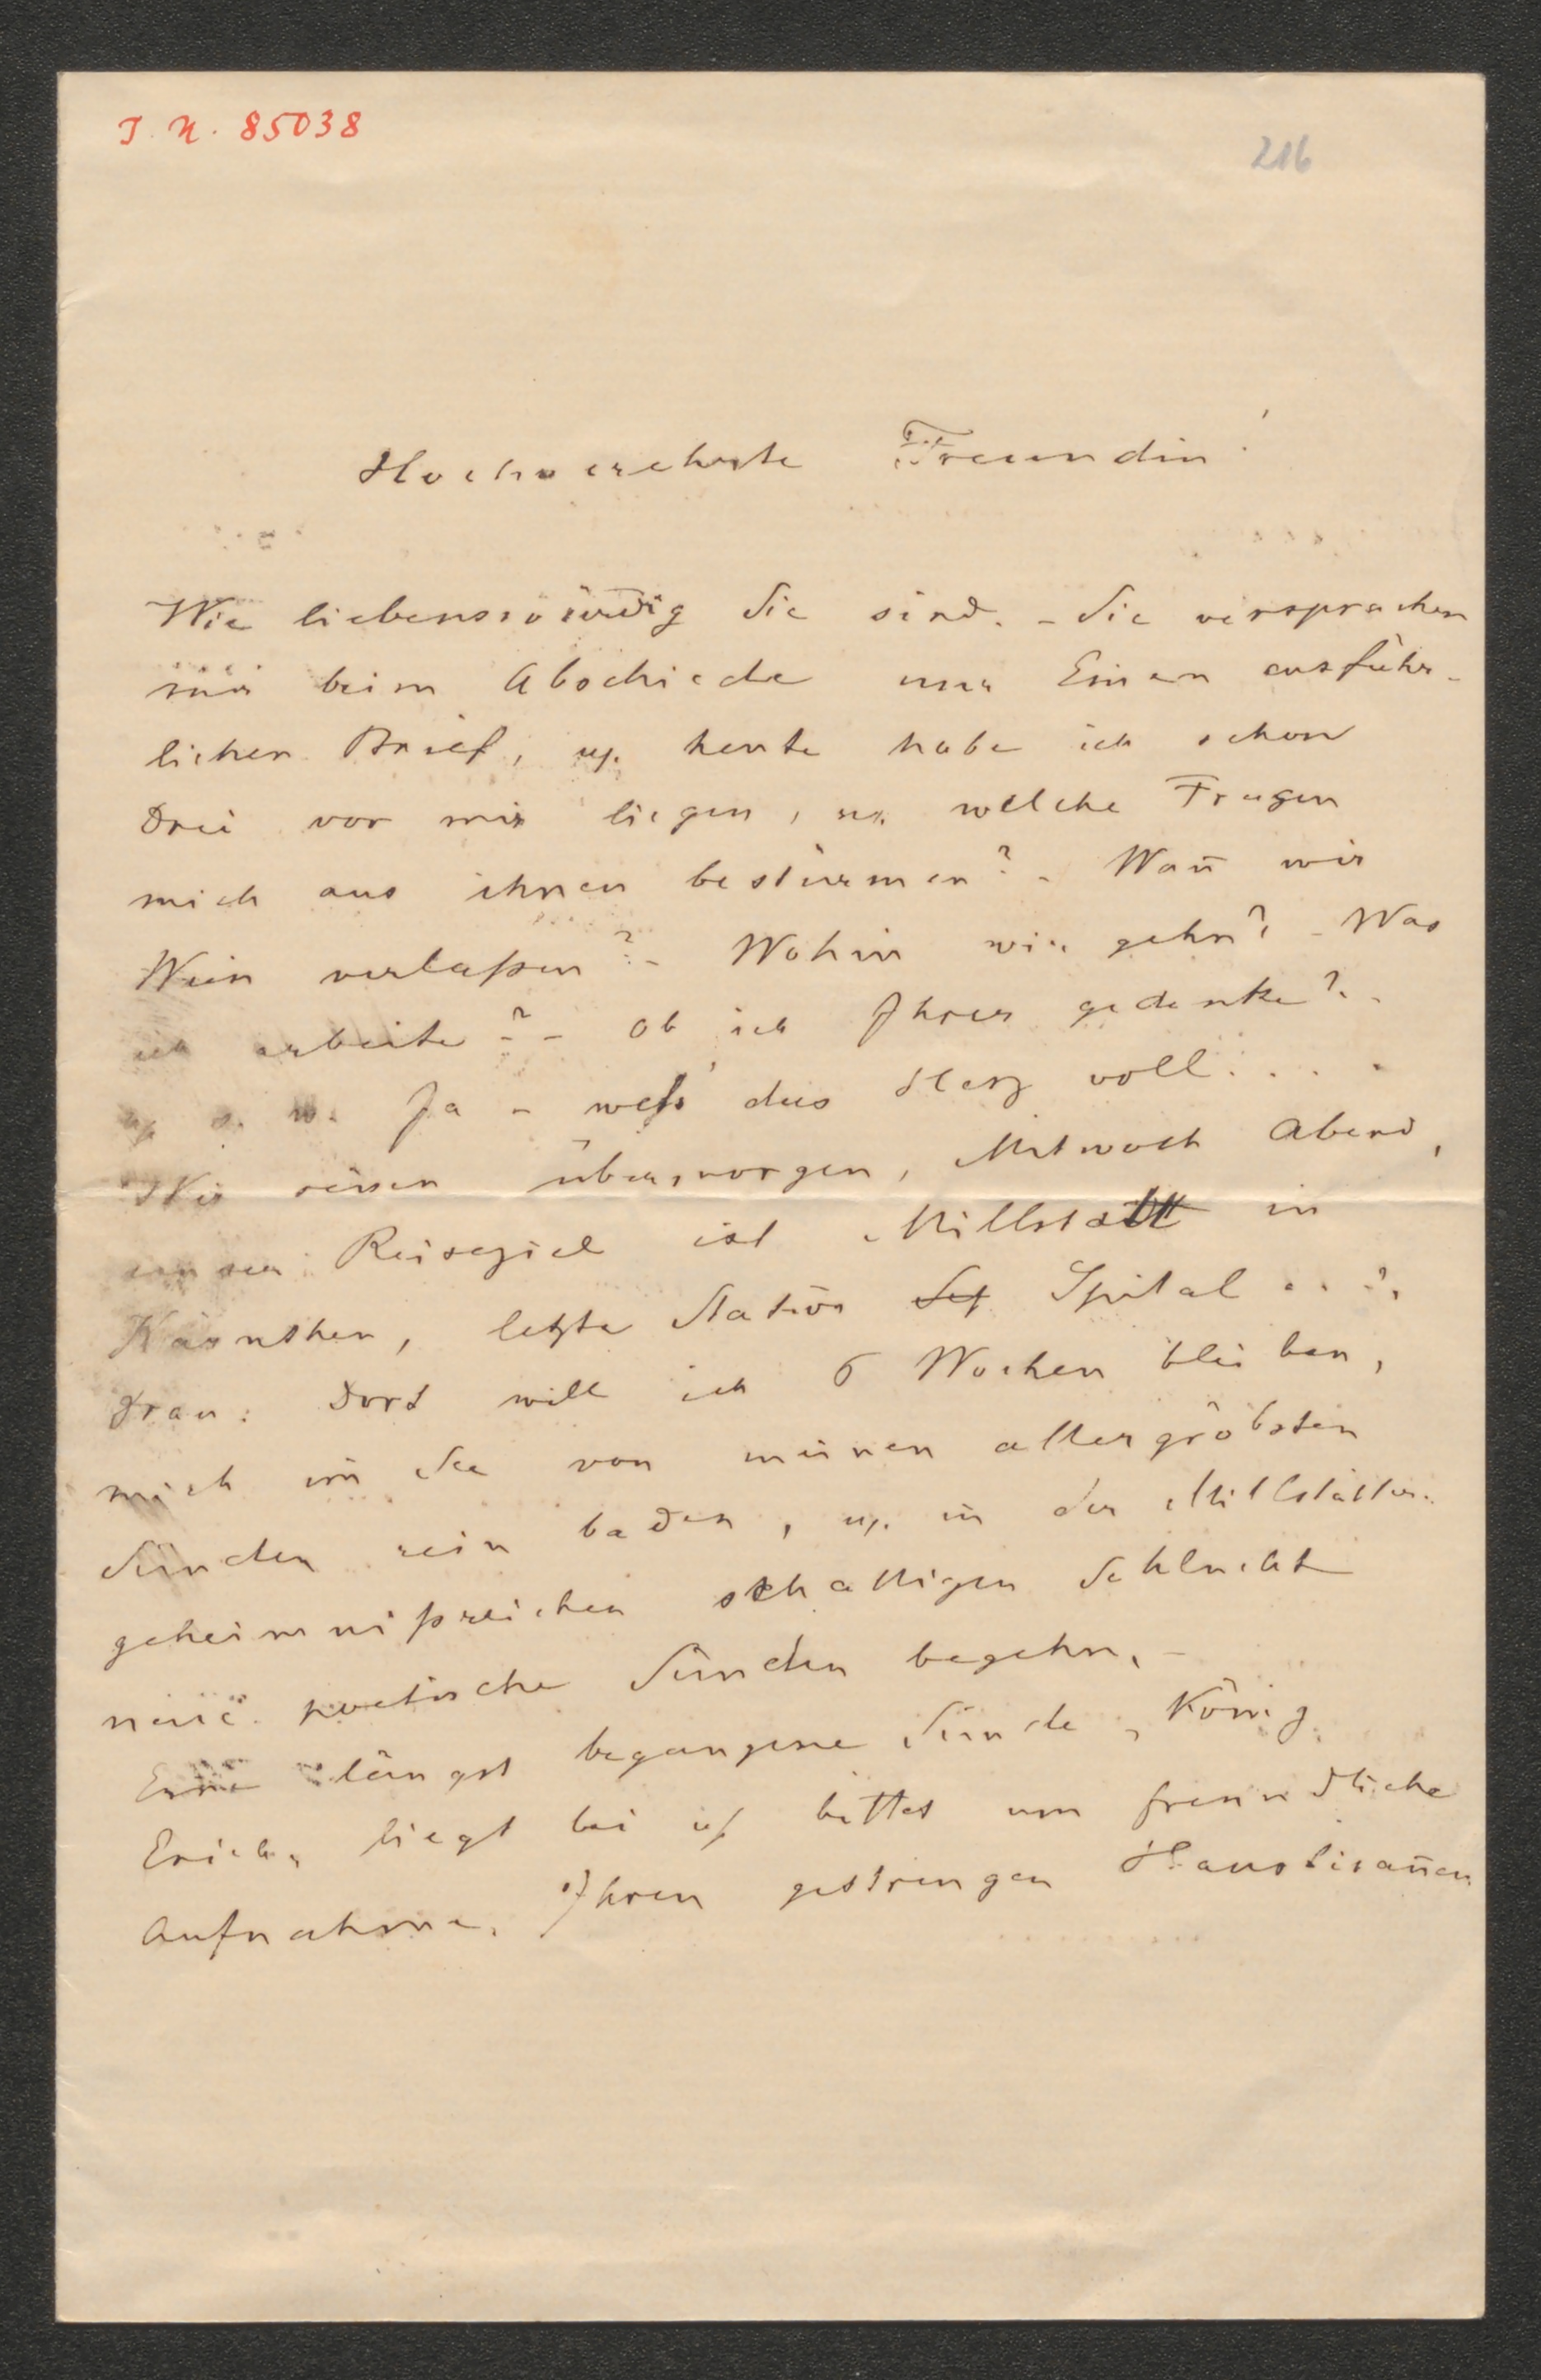 I. N. 85038
216
Hochverehrte Freundin!
Wie liebenswürdig Sie sind. - Sie versprachen
mir beim Abschiede nur Einen ausführ-
lichen Brief, u. heute habe ich schon
Drei vor mir liegen, u. welche Fragen
mich aus ihnen bestürmen? - Wañ wir
Wien verlaßen? - Wohin wir gehn? - Was
ich arbeite? - Ob ich Ihrer gedenke? -
u. s. w. Ja - weß' das Herz voll . . . .
Wir reisen übermorgen, Mitwoch Abend,
unser Reiseziel ist Millstatt in
Kärnthen, letzte Station Spital a. d.
Drau: Dort will ich 6 Wochen bleiben,
mich im See von meinen allergröbsten
Sünden rein baden, u. in der Millstätter-
geheimnißreichen schattigen Schlucht
neue poetische Sünden begehn. -
Eine längst begangene Sünde „König
Erich“ liegt bei u. bittet um freundliche
Aufnahme. Ihren gestrengen Haustirañen